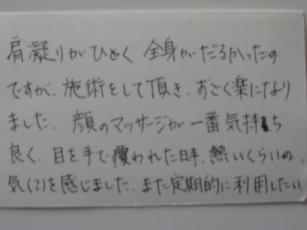 肩凝りがひどく 全身がだるかったの
ですが、施術をして頂き、すごく楽になり
ました。顔のマッサージが一番気持ち
良く、目を手で覆われた時、熱いくらいの
気(?)を感じました。また定期的に利用したい